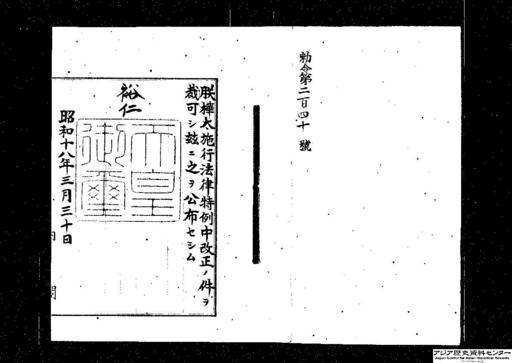 勅令第二百四十號
朕樺太施行法律特例中改正ノ件ヲ
裁可シ玆ニ之ヲ公布セシム
裕仁
天皇御璽
昭和十八年三月三十日
内閣
アジア歴史資料センター
Japan Center for Asian Historical Records